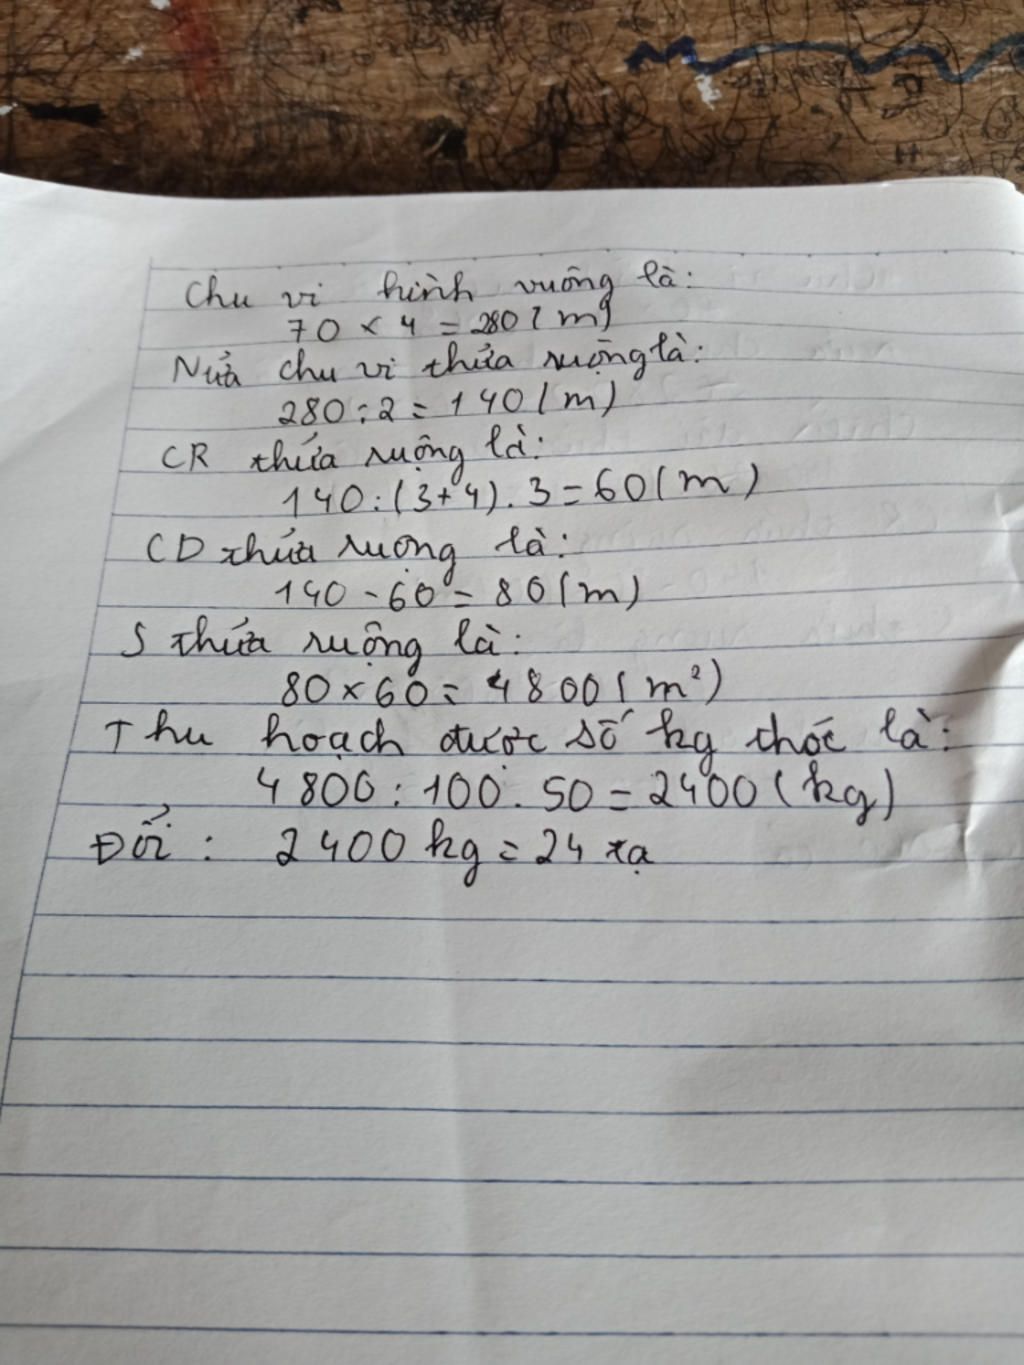 Chu vi hình vuông là:
70 × 4 = 280 (m)
Nửa chu vi thửa ruộng là:
280 : 2 = 140 (m)
CR thửa ruộng là:
140 : (3+4) . 3 = 60 (m)
CD thửa ruộng là:
140 - 60 = 80 (m)
S thửa ruộng là:
80 × 60 = 4800 (m²)
Thu hoạch được số kg thóc là:
4800 : 100 . 50 = 2400 (kg)
Đổi : 2400 kg = 24 tạ